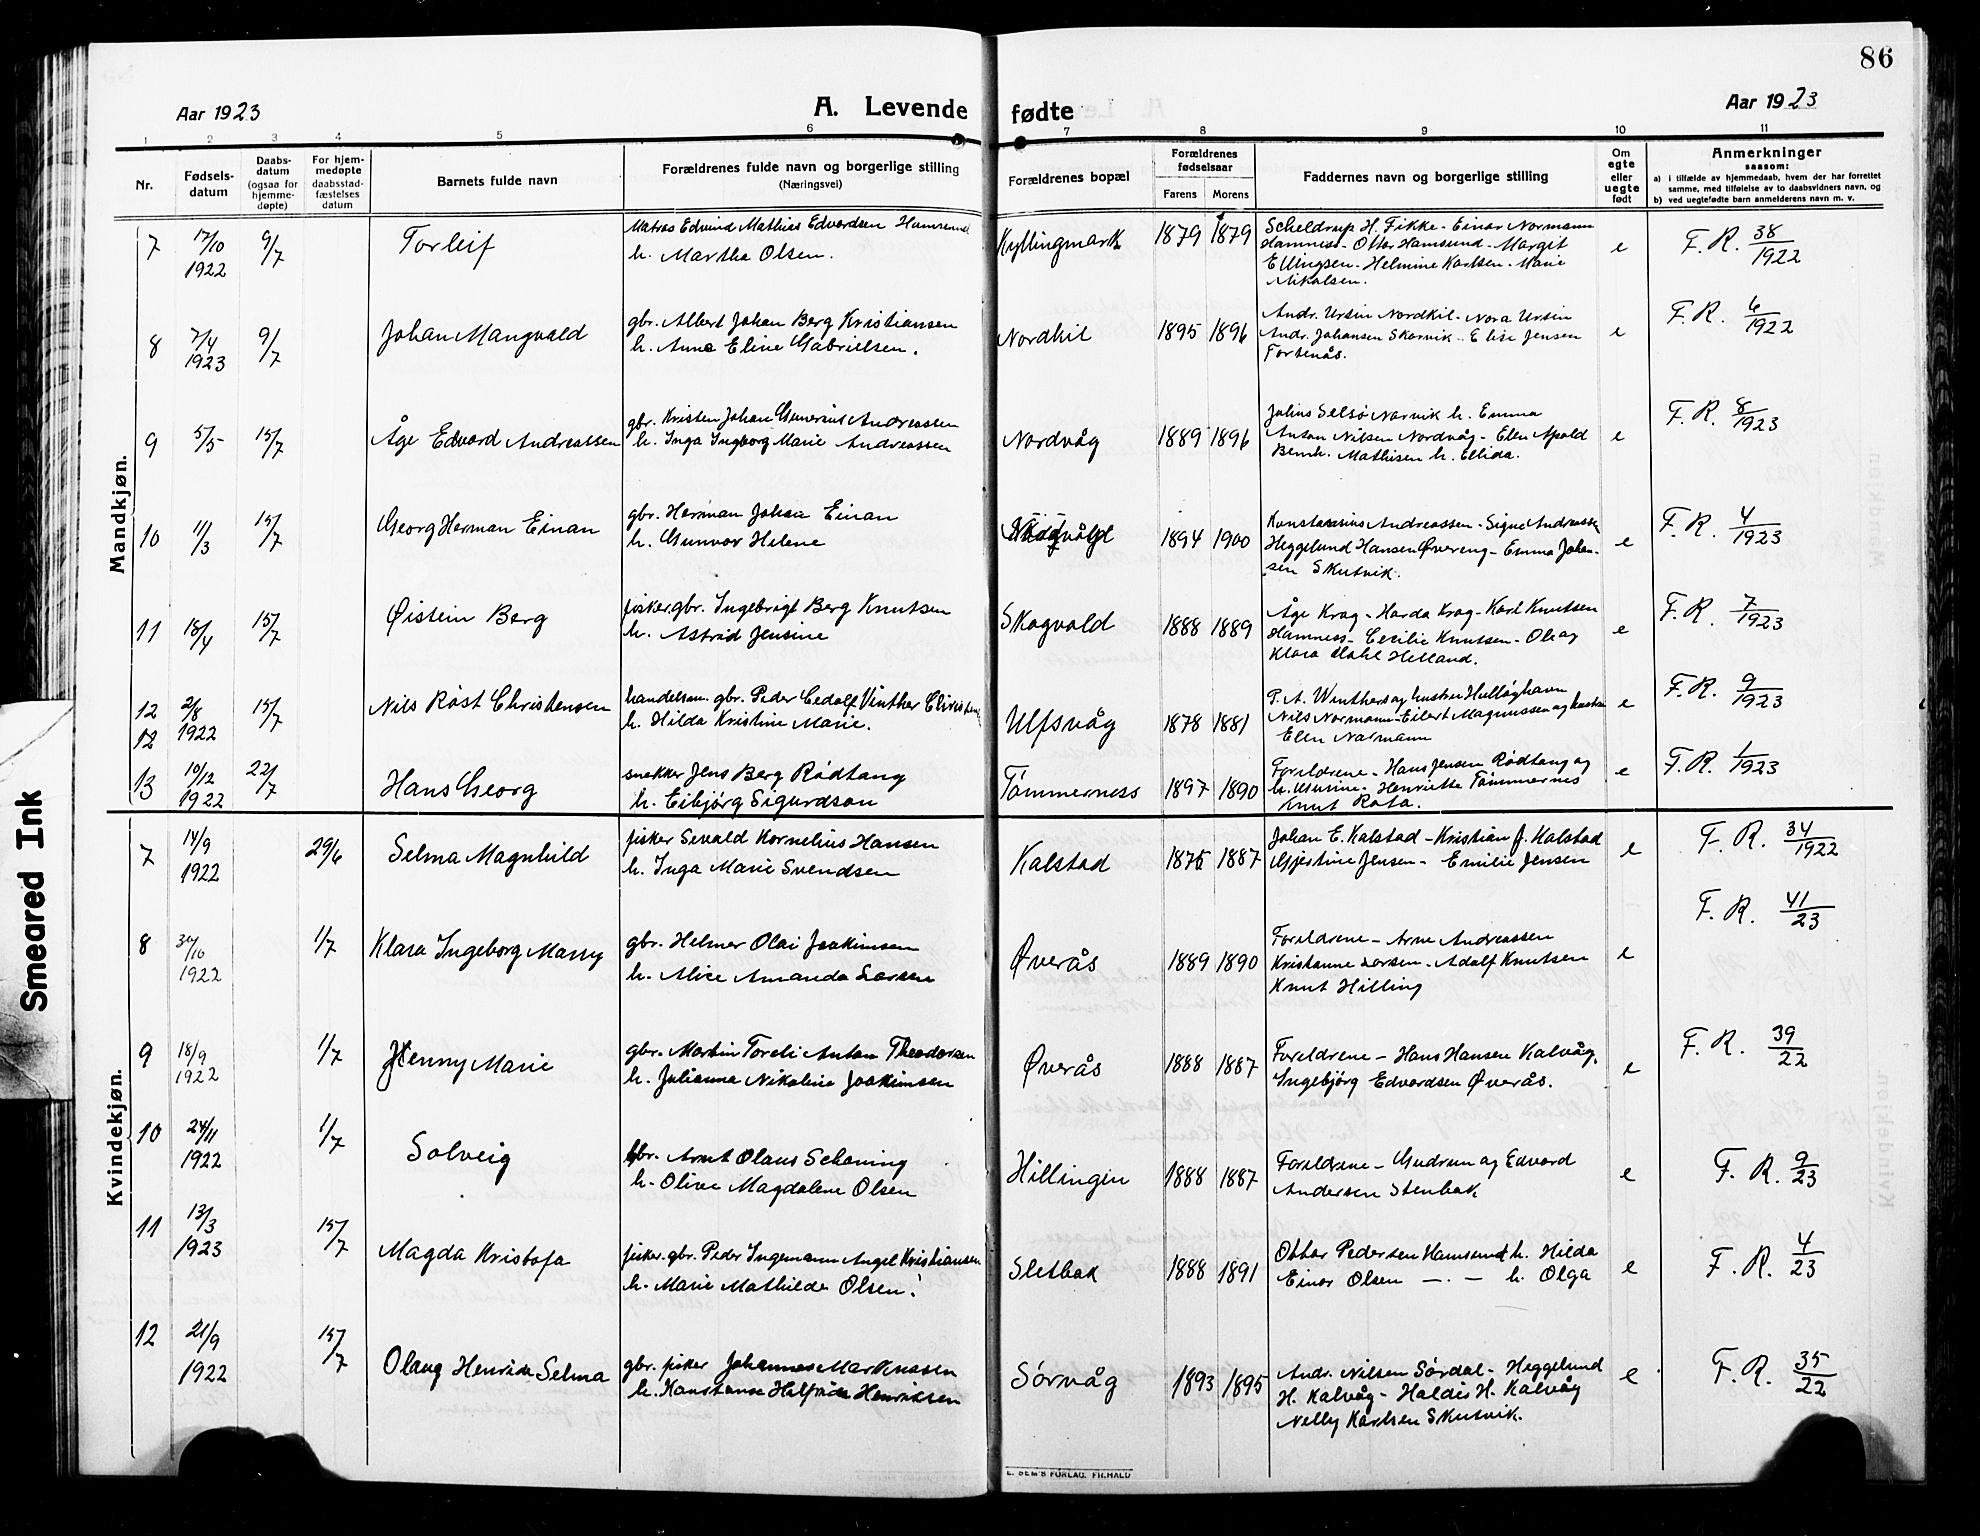 86
Aar 1923 A. Levende fødte Aar 1923
1 2 3 4 5 6 7 8 9 10 11
Nr.
Fødsels-
datum
Daabs-
datum
(ogsaa for
hjemme-
døpte)
For hjem-
medøpte
daabsstad-
fæstelses
datum
Barnets fulde navn
Forældrenes fulde navn og borgerlige stilling
(Næringsvei)
Forældrenes bopæl
Forældrenes
fødselsaar
Farens Morens
Faddernes navn og borgerlige stilling
Om
egte
eller
uegte
født
Anmerkninger
saasom:
a) i tilfælde av hjemmedaab, hvem der har forrettet
samme, med tilføielse av to daabsvidners navn, og
b) ved uegtefødte barn anmelderens navn m. v.
Mandkjøn.
7 17/10 1922 9/7 Torleif
Matros Edvind Mathias Edvardsen Hamsund
h. Martha Olsen.
Kyllingmark 1879 1879
Scheldrup H. Fikke - Einar Normann
Hamnes - Ottar Hamsund - Margit
Ellingsen - Helmine Karlsen - Marie
Nikolsen.
e F. R. 38/1922
8 7/4 1923 9/7 Johan Mangvald
gbr. Albert Johan Berg Kristiansen
h. Anna Eline Gabrielsen.
Nordkil 1895 1896
Andr. Ursin Nordkil - Nora Ursin
Andr. Johansen Skarvik - Elise Jensen
Fortenås.
e F. R. 6/1922
9 5/5 15/7 Åge Edvard Andreassen
gbr. Kristen Johan Gunerius Andreassen
h. Inga Ingborg Marie Andreassen
Nordvåg 1889 1896
Julius Selsø Narvik h. Emma
Anton Nilsen Nordvåg - Elen Apold
Bernh. Mathisen h. Ellida.
e F. R. 8/1923
10 11/3 15/7 Georg Herman Einan
gbr. Herman Johan Einan
h. Gunvor Helene
1894 1900
Konstansius Andreassen - Signe Andreassen
Heggelund Hansen Øvereng - Emma Johan-
sen Skutvik.
e F. R. 4/1923
11 18/4 15/7 Øistein Berg
fisker, gbr. Ingebrigt Berg Knutsen
h. Astrid Jensine
Skogvold 1888 1889
Åge Krog - Harda Krog - Karl Knutsen
Hamness - Cecilie Knutsen - Ole og
Klara Dahl Helland.
e F. R. 7/1923
12
12 2/8 1922 15/7 Nils Røst Christensen
handelsm. gbr. Peder Cedolf Vinther Christens
h. Hilda Kristine Marie.
Ulfsvåg 1878 1881
P. A. Winthers og hustru Helløghavn
Nils Normann - Eilert Magnussen og hustru
Elen Normann
e F. R. 9/1923
13 10/12 1922 22/7 Hans Georg
snekker Jens Berg Rødtang
h. Eibjørg Sigurdson
Tømmerness 1897 1890
Foreldrene - Hans Jensen Rødtang og
h. - Henriette Tømmernes
Knut Rota.
e F. R. 1/1923
Kvindekjøn.
7 14/9 1922 29/6 Selma Magnhild
fisker Sevald Kornelius Hansen
h. Inga Marie Svendsen
Kalstad 1875 1887
Johan E. Kalstad - Kristian J. Kalstad
Gjertine Jensen - Emilie Jensen
e F. R. 34/1922
8 1922 1/7 Klara Ingeborg Marry
gbr. Helmer Olai Joakimsen
h. Alice Amanda Larsen
Øverås 1889 1890
Foreldrene - Arne Andreassen
Kristanne Larsen - Adolf Knutsen
Knut Hilling
e F. R. 41/23
9 18/9 1922 1/7 Jenny Marie
gbr. Martin Toreli Anton Theodorsen
h. Julianna Nikoline Joakimsen
Øverås 1888 1887
Foreldrene - Hans Hansen Kalvåg.
Ingebjørg Edvardsen Øverås.
e F. R. 39/22
10 24/11 1922 1/7 Solveig
gbr. Arnt Olaus Schøning
h. Olive Magdalene Olsen
Hillingen 1888 1887
Foreldrene - Gudrun og Edvard
Andersen Stenbak
e F. R. 9/23
11 13/3 1923 15/7 Magda Kristofa
fisker, gbr. Peder Ingemann Angel Kristiansen
h. Marie Mathilde Olsen.
Sletbak 1888 1891
Ottar Pedersen Hamsund h. Hilda
Einar Olsen — . — h. Olga
e F. R. 4/23
12 21/9 1922 15/7 Olaug Henrida Selma
gbr. fisker Johannes Markussen
h. Konstanse Halfrida Henriksen
Sørvåg 1893 1895
Andr. Nilsen Sørdal - Heggelund
H. Kalvåg - Haldis H. Kalvåg
Nelly Karlsen Skutvik.
e F. R. 35/22
E. SEM'S FORLAG. FR.HALD
Smeared Ink